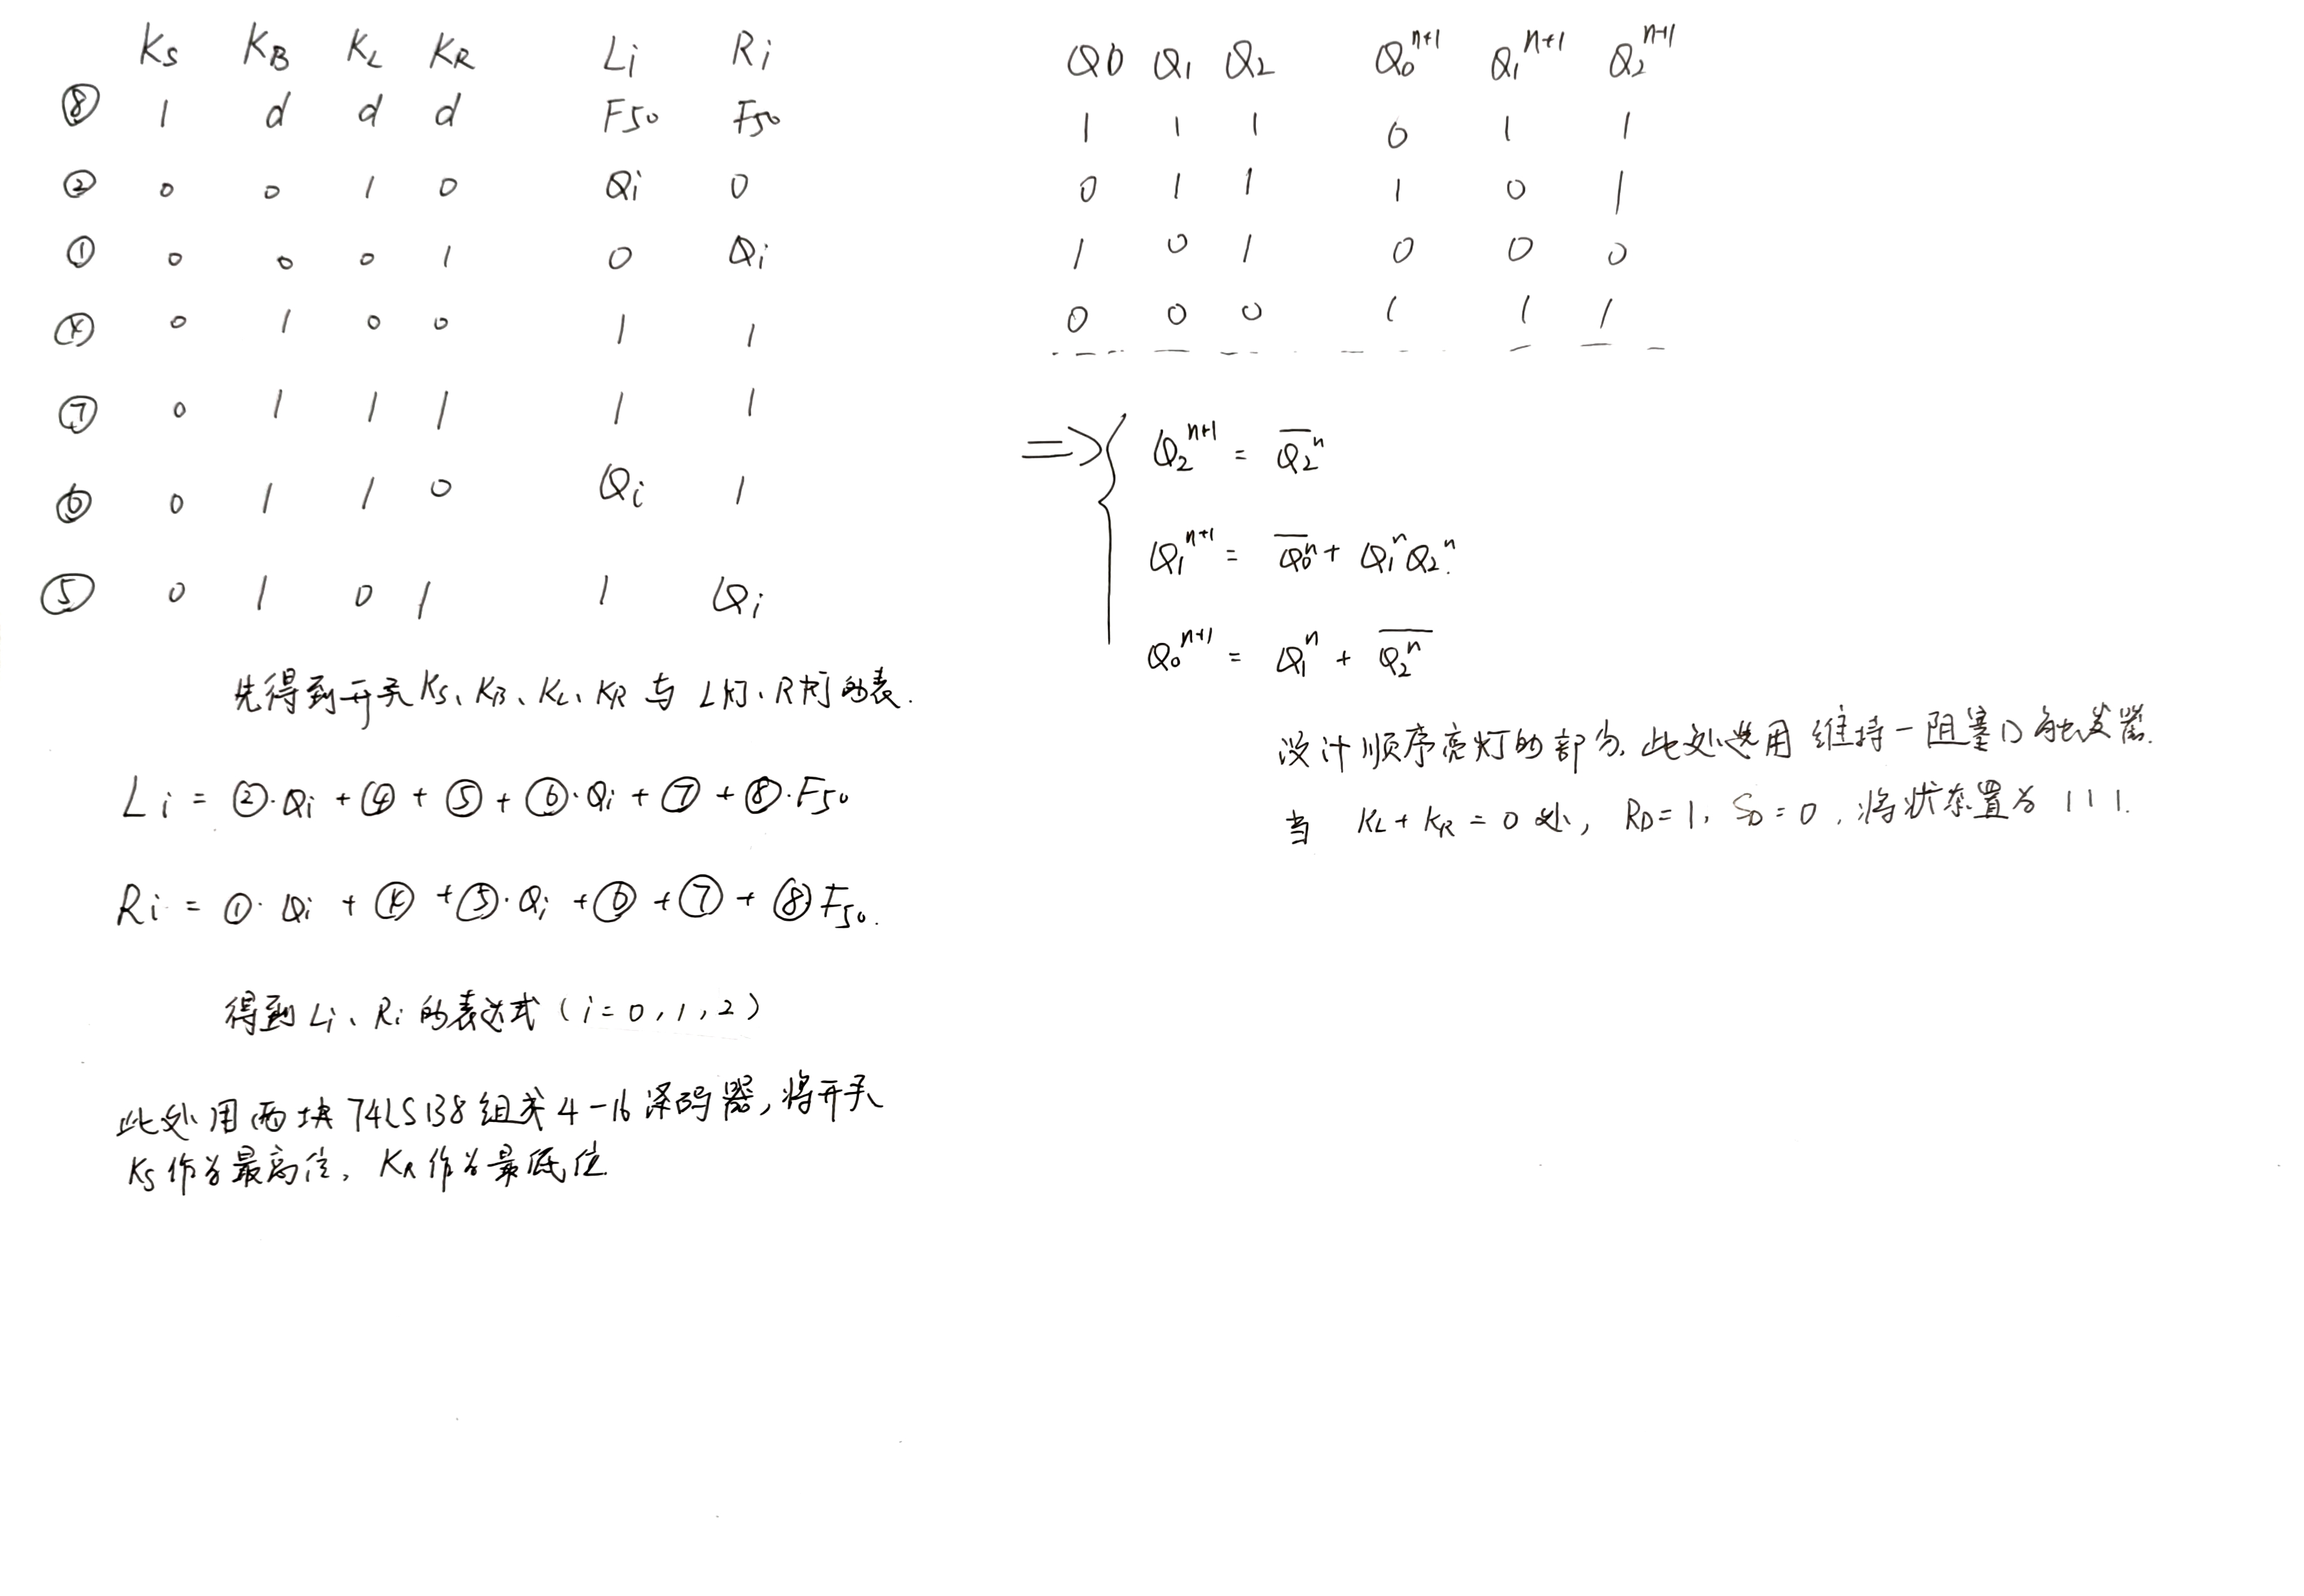 Ks KB KL KR Li Ri
⑧ 1 d d d F50 F50
② 0 0 1 0 Qi 0
① 0 0 0 1 0 Qi
④ 0 1 0 0 1 1
⑦ 0 1 1 1 1 1
⑥ 0 1 1 0 Qi 1
⑤ 0 1 0 1 1 Qi
先得到开关Ks、KB、KL、KR与L灯、R灯的表.
Li = ②·Qi + ④ + ⑤ + ⑥·Qi + ⑦ + ⑧·F50
Ri = ①·Qi + ④ + ⑤·Qi + ⑥ + ⑦ + ⑧F50.
得到Li、Ri的表达式(i=0,1,2)
此处用两块74LS138组成4-16译码器,将开关
Ks作为最高位,KR作为最低位.
Q0 Q1 Q2 Q0^n+1 Q1^n+1 Q2^n+1
1 1 1 0 1 1
0 1 1 1 0 1
1 0 1 0 0 0
0 0 0 1 1 1
=> { Q2^n+1 = Q̅2^n
Q1^n+1 = Q̅0^n + Q1^n Q2^n.
Q0^n+1 = Q1^n + Q̅2^n
设计顺序亮灯的部分,此处选用维持-阻塞D触发器.
当 KL+KR=0处, RD=1, SD=0,将状态置为111.